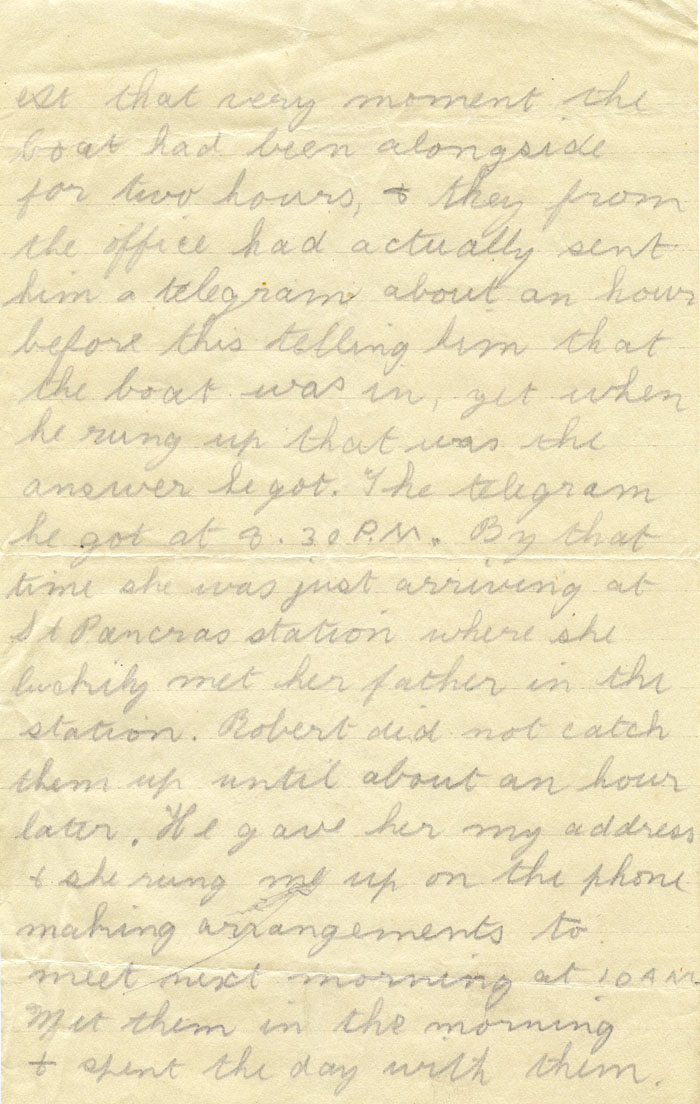 At that very moment the
boat had been alongside
for two hours, & they from
the office had actually sent
him a telegram about an hour
before this telling him that
the boat was in, yet when
he rung up that was the
answer he got. The telegram
he got at 8.30 P.M. By that
time she was just arriving at
St Pancras station where she
luckily met her father in the
station. Robert did not catch
them up until about an hour
later. He gave her my address
& she rung me up on the phone
making arrangements to
meet next morning at 10 AM.
Met them in the morning
& spent the day with them.